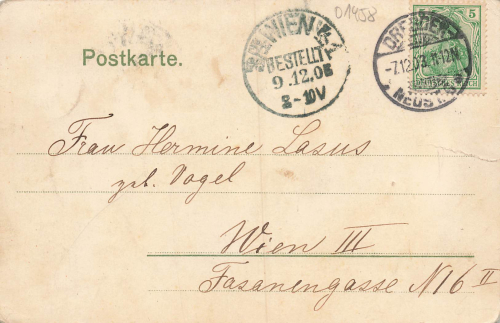 01458
Postkarte.
WIEN
BESTELLT
9.12.03
8-10V
DRESDEN
-7.12.03.11-12N.
NEUST.
5
Frau Hermine Lasus
geb. Vogel
Wien III
Fasanengasse N16 II